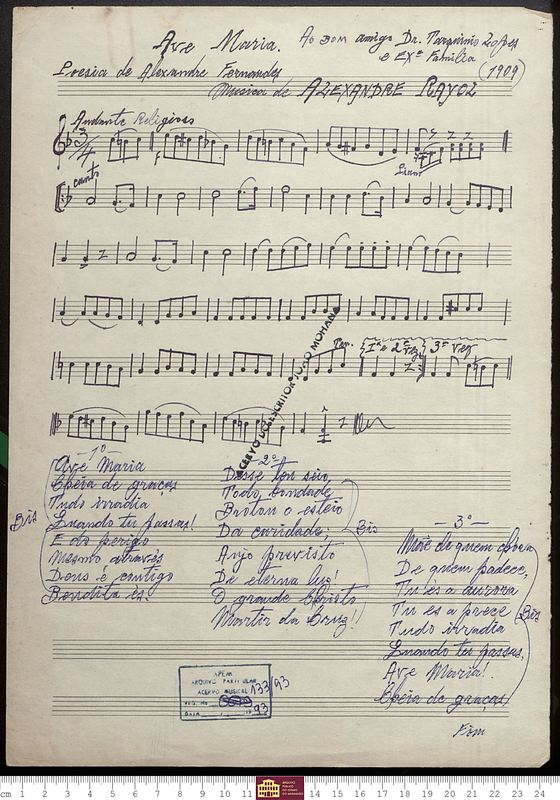 Ave Maria.
Ao Bom amigo Dr. Tarquinio Lopes
e Exª Familia
(1909)
Poesia de Alexandre Fernandes
Musica de ALEXANDRE RAYOL
Andante Religioso
3/4
canto
Piano
1ª e 2ª vez
3ª vez
ACERVO DO ESCRITOR JOÃO MOHANA
— 1º —
Ave Maria
Cheia de graças
Tudo irradia
Quando tu passas!
E do perigo
Mesmo atravès
Deus é contigo
Bendita és.
Bis
— 2º —
Deste teu seio,
Todo, bondade,
Brotou o esteio
Da caridade;
Anjo previsto
De eterna luz!
O grande Christo,
Martir da Cruz!!
Bis
— 3º —
Mãe de quem chora
De quem padece,
Tu és a aurora
Tu es a prece
Tudo irradia
Quando tu passas,
Ave Maria!
Cheia de graças
Bis
Fim
APEM
ARQUIVO PARTICULAR
ACERVO MUSICAL 133/93
REG. No.
DATA 93
cm 1 2 3 4 5 6 7 8 9 10 11 12 13 14 15 16 17 18 19 20 21 22 23 24
ARQUIVO PÚBLICO DO ESTADO DO MARANHÃO